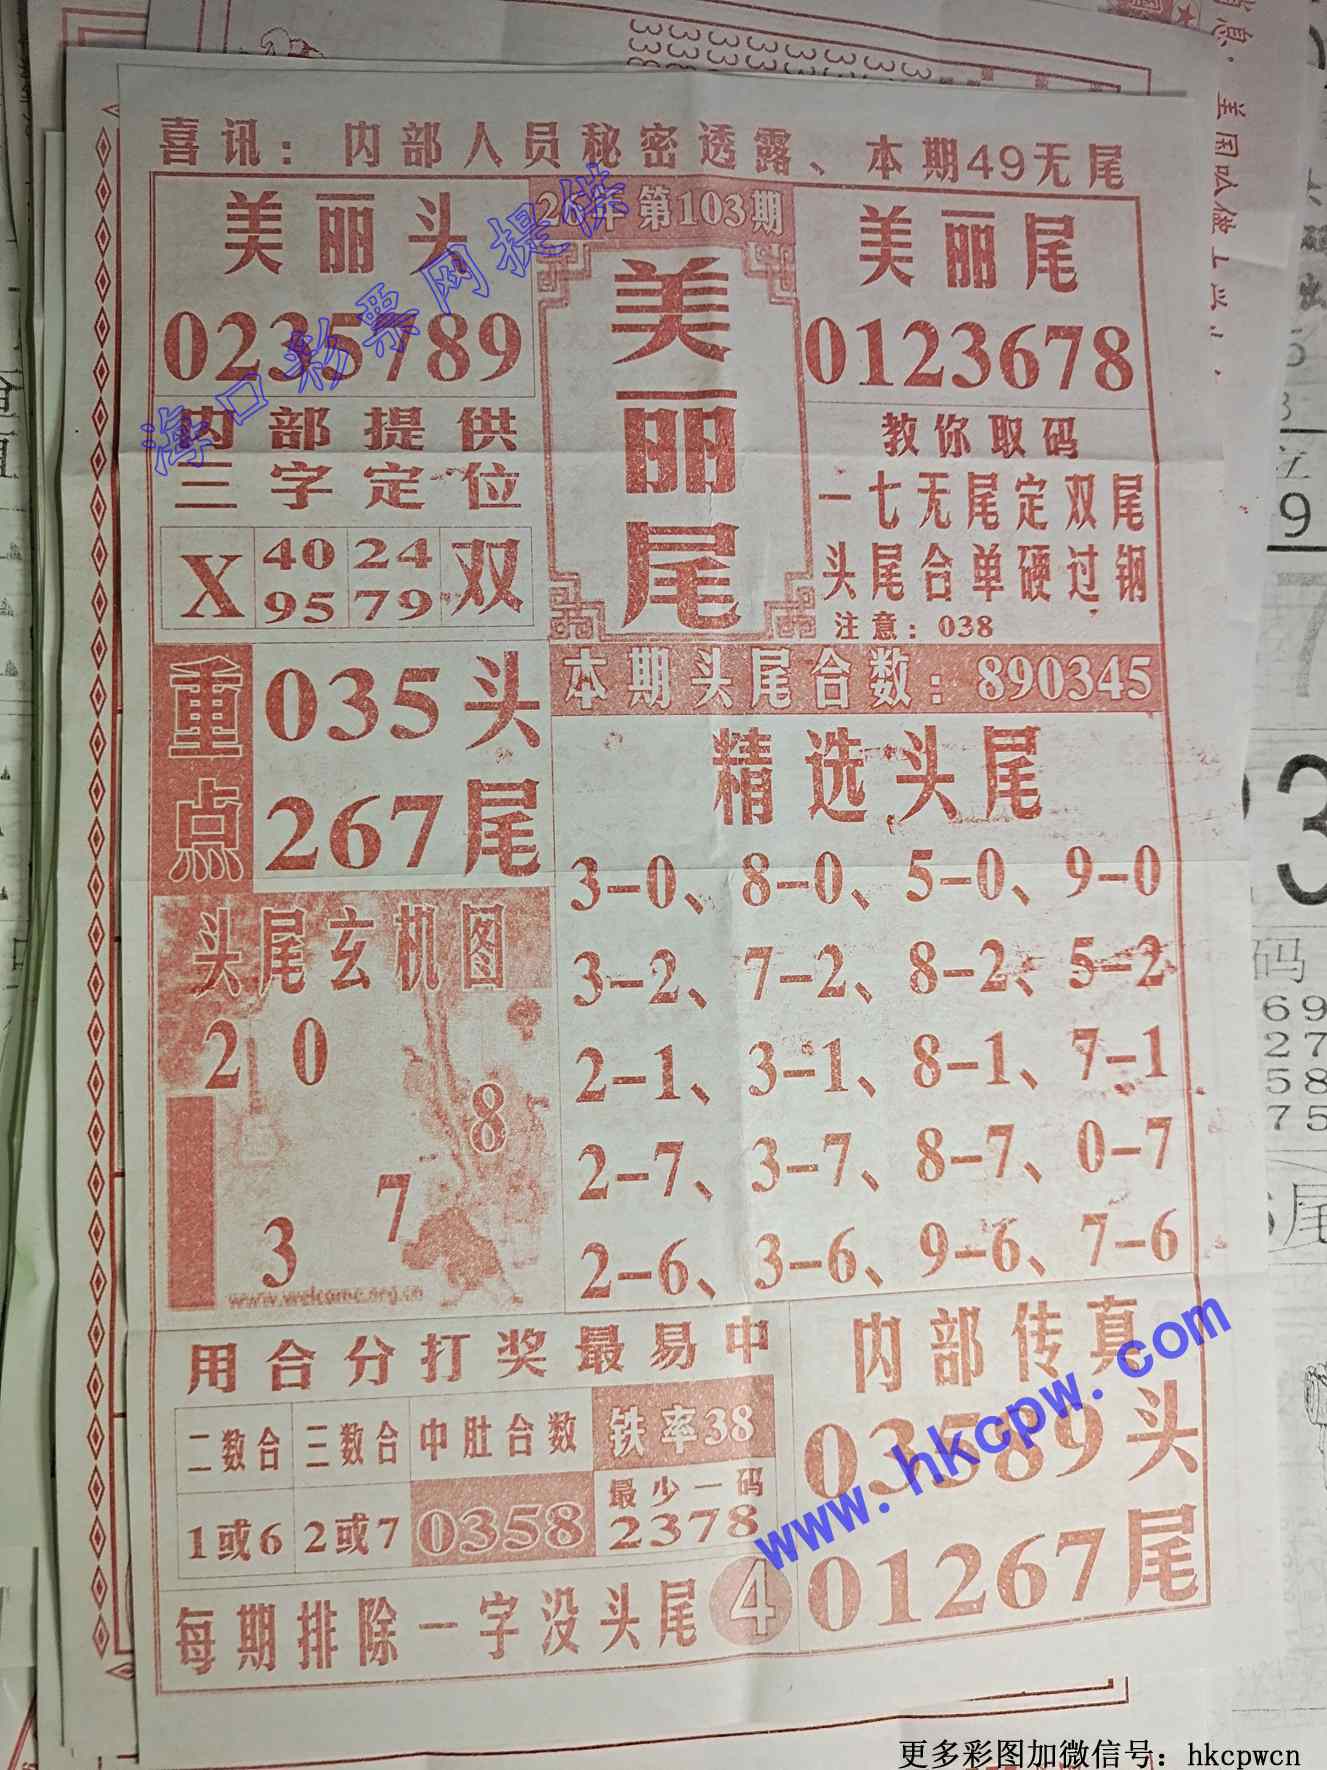 喜讯：内部人员秘密透露、本期49无尾
美丽头
0235789
年第103期
美丽尾
美丽尾
0123678
海口彩票网提供
内部提供
三字定位
X
40 24
95 79
双
教你取码
一七无尾定双尾
头尾合单硬过钢
注意：038
重点
035头
267尾
本期头尾合数：890345
精选头尾
3-0、8-0、5-0、9-0
3-2、7-2、8-2、5-2
2-1、3-1、8-1、7-1
2-7、3-7、8-7、0-7
2-6、3-6、9-6、7-6
头尾玄机图
2 0
8
7
3
www.welcome.org.cn
用合分打奖最易中
二数合 三数合 中肚合数 铁率38
1或6 2或7 0358
最少一码
2378
每期排除一字没头尾4
内部传真
03589头
01267尾
www.hkcpw.com
更多彩图加微信号：hkcpwcn